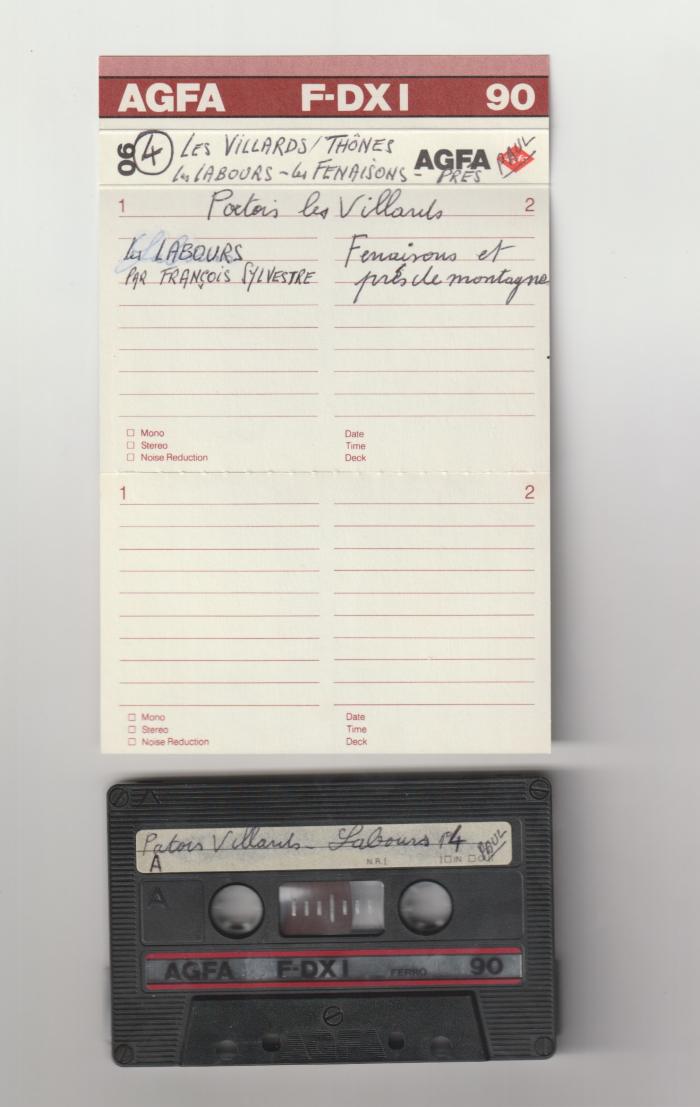 AGFA F-DX I 90
90 4 LES VILLARDS/THÔNES AGFA PAUL
les LABOURS - les FENAISONS - PRÉS
1 Patois les Villards 2
les LABOURS
PAR FRANÇOIS SYLVESTRE
Fenaisons et
prés de montagne
☐ Mono
☐ Stereo
☐ Noise Reduction
Date
Time
Deck
1 2
☐ Mono
☐ Stereo
☐ Noise Reduction
Date
Time
Deck
Patois Villards - Labours 4 PAUL
A
N.R.
☐ IN ☐
A
AGFA F-DX I FERRO 90
AGFA